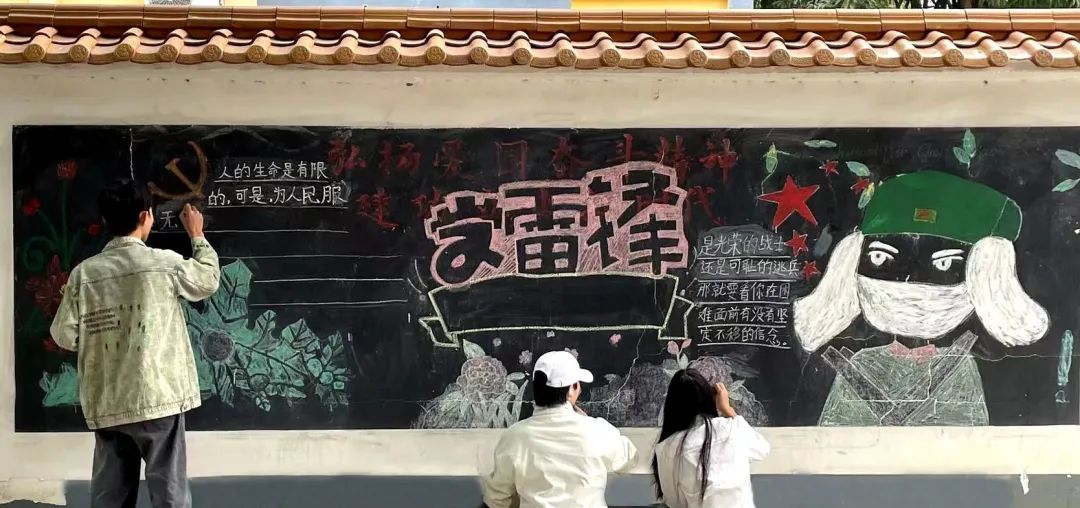 人的生命是有限
的，可是，为人民服
无
弘扬爱国奋斗精神
建
代
学雷锋
是光荣的战士
还是可耻的逃兵
那就要看你在困
难面前有没有坚
定不移的信念。